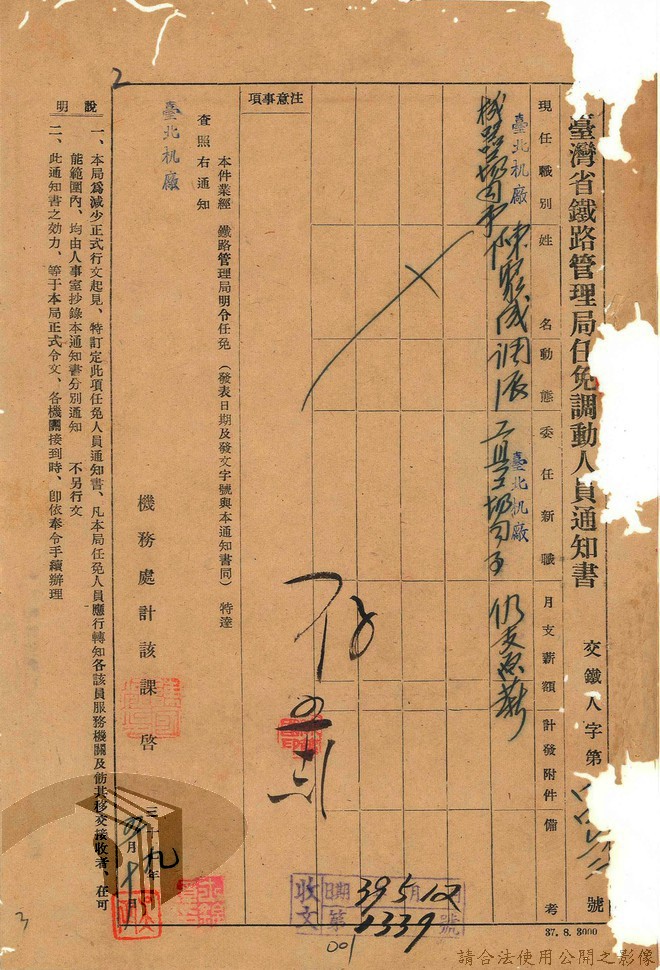 臺灣省鐵路管理局任免調動人員通知書
交鐵人字第
號
現任職別
姓名
動態
委任新職
月支薪額
計發附件
備考
臺北机廠
陳
成
调派
臺北机廠
工具場司事
仍支原薪
注意事項
本件業經 鐵路管理局明令任免 (發表日期及發文字號與本通知書同) 特達
查照右通知
臺北机廠
機務處計該課 啓
三十九年
月十
日
說明
一、本局爲減少正式行文起見、特訂定此項任免人員通知書、凡本局任免人員應行轉知各該員服務機關及飭其移交接收者、在可
能範圍內、均由人事室抄錄本通知書分別通知 不另行文
二、此通知書之効力、等于本局正式令文、各機關接到時、卽依奉令手續辦理
收文
日期 39 5月12
第 1339 號
001
37. 8. 3000
2
3
請合法使用公開之影像